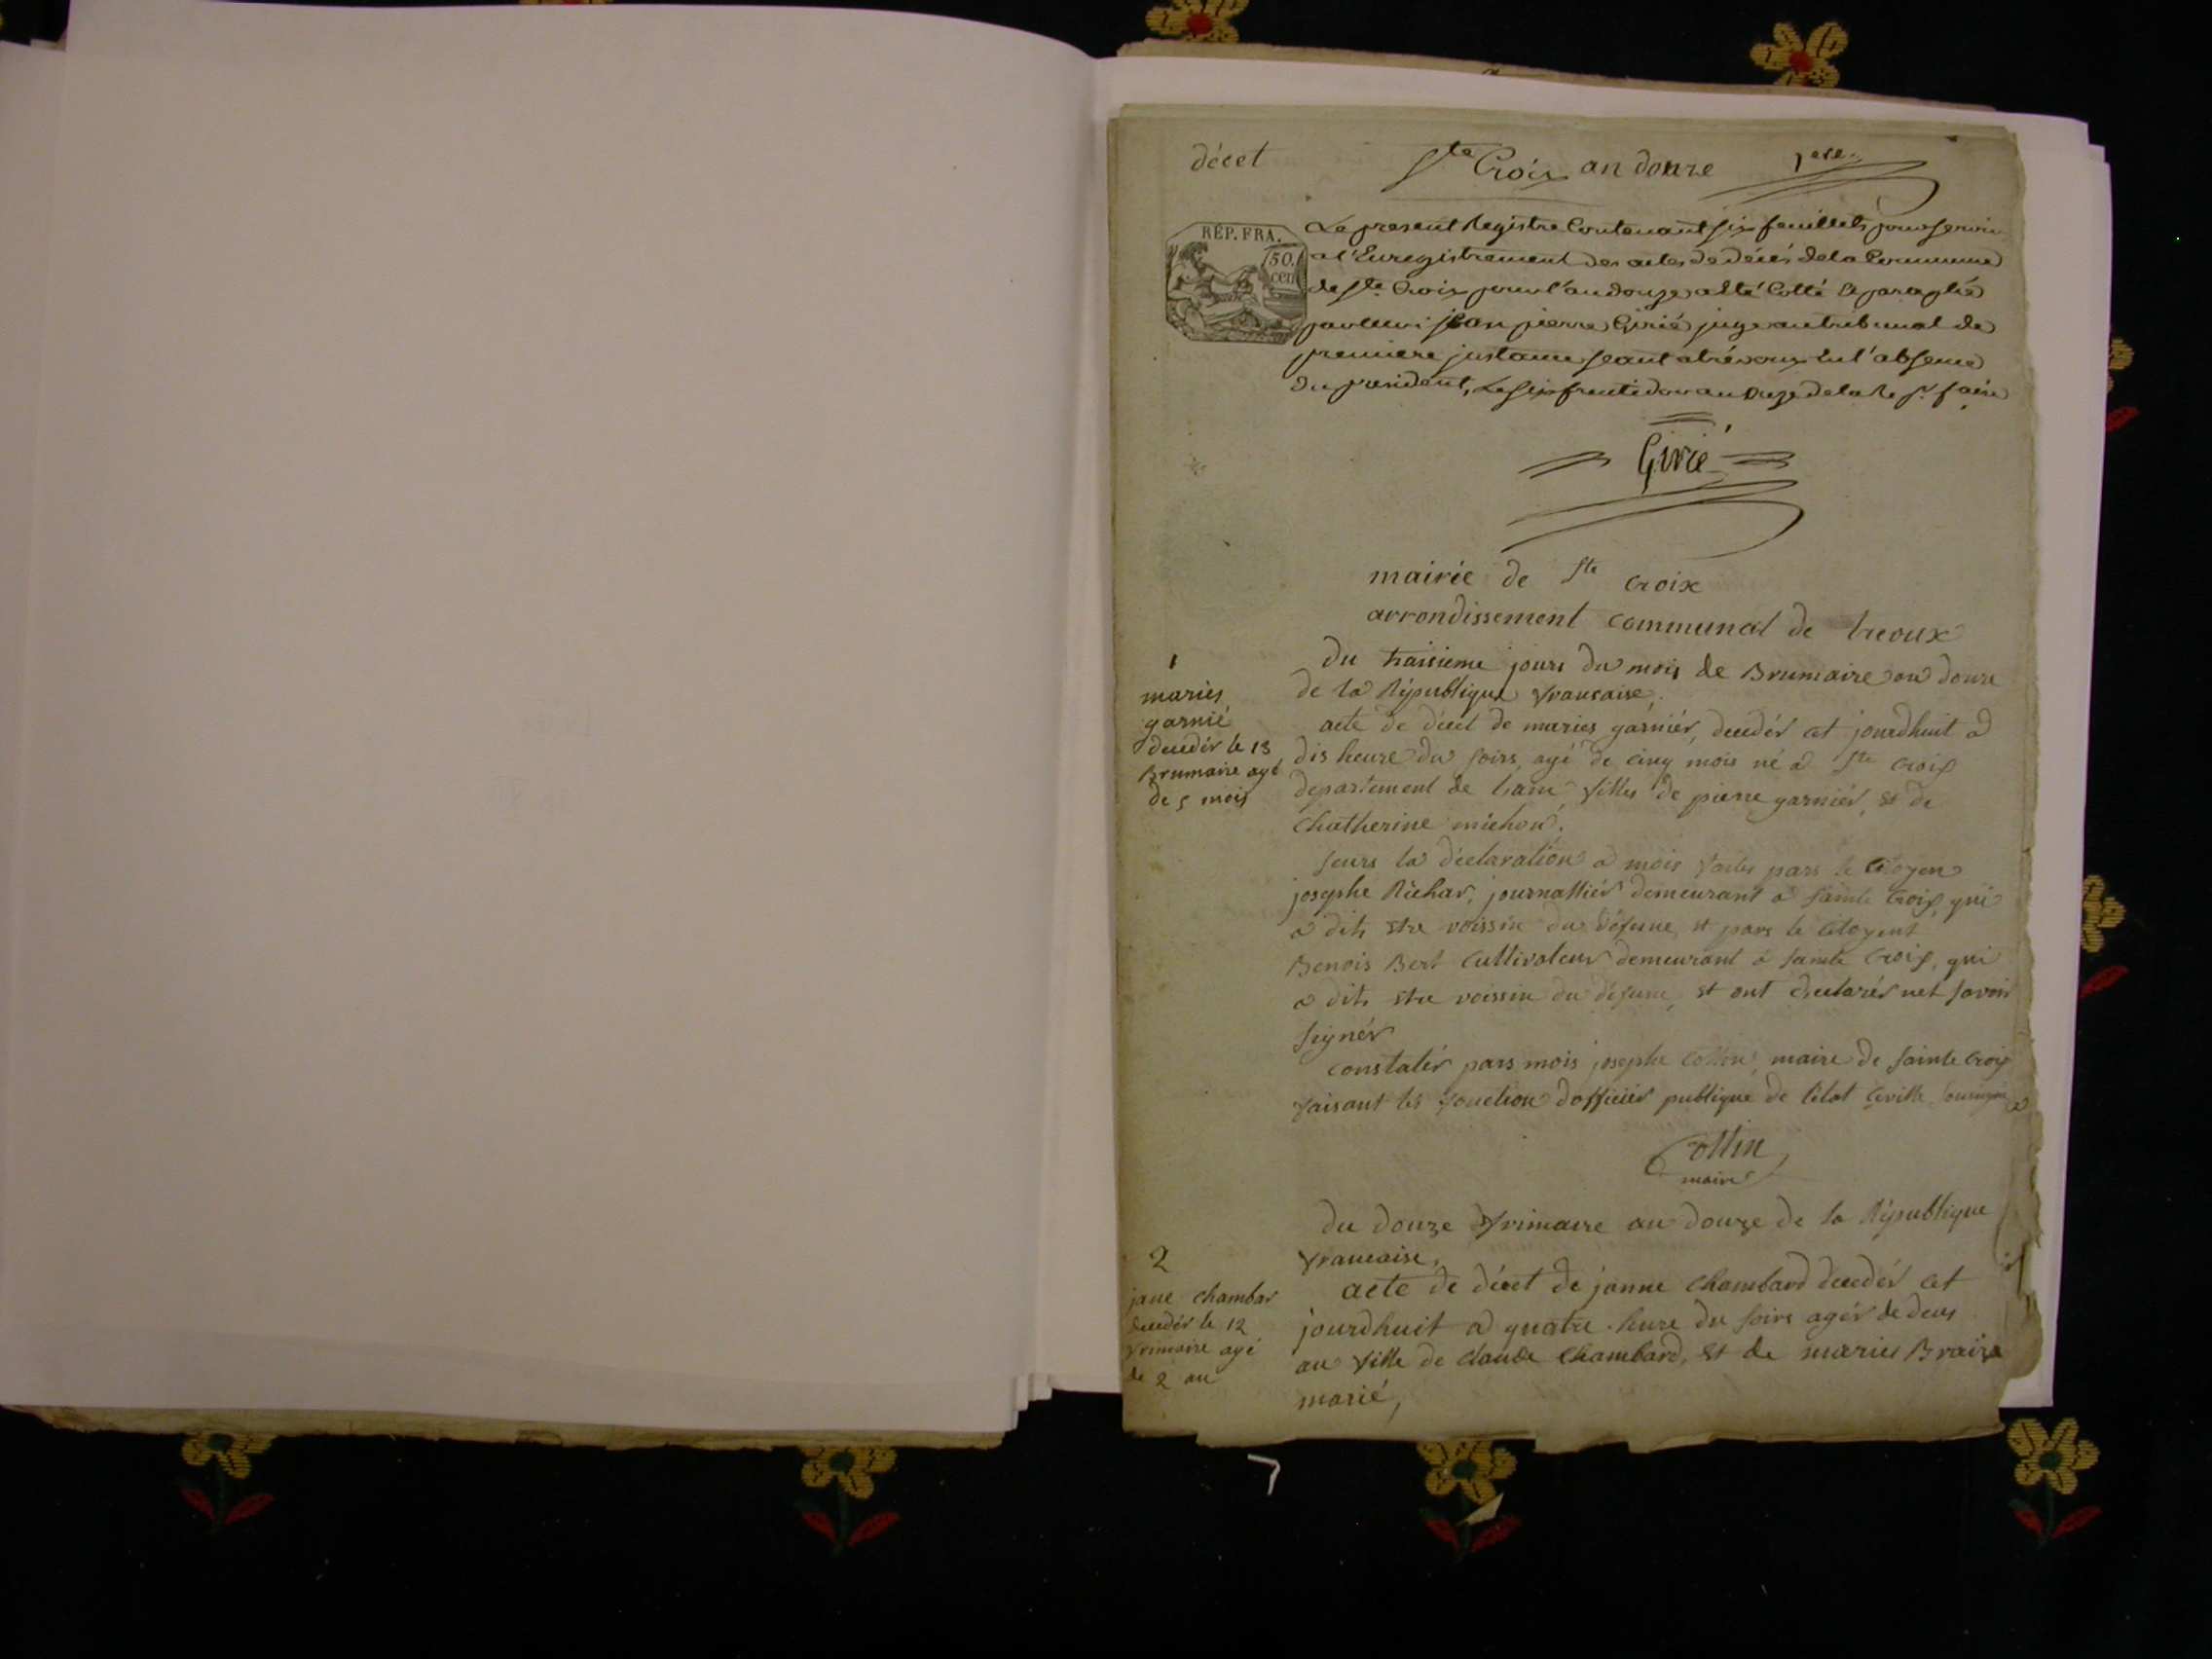 décet
Ste Croix an douze
RÉP. FRA.
50. cen
Le present Registre Contenant six feuillets pour servir
a l'Enregistrement des actes de décès de la Commune
de Ste Croix pour l'an douze a été Cotté et paraphé
par nous jean pierre Girié juge au tribunal de
premiere justance seant a trévoux En l'absence
du president, Le six fructidor an onze de la Re
Girié
mairie de Ste Croix
arrondissement communal de treoux
1
maries
garnié
decedér le 13
Brumaire agé
de 5 mois
Du traisieme jours du mois de Brumaire an douze
de la République francaise.
acte de décet de maries garniér, decedér cet jourdhuit a
dis heure du soirs, agé de cinq mois né a Ste Croix
departement de lain filles de pierre garniér, et de
Chatherine michon.
surs la déclaration a mois faites pars le Citoyen
josephe Richar, journalliér demeurant a sainte Croix, qui
a dits etre voissin du défune, et pars le Citoyent
Benois Bert Cultivateur demeurant a sainte Croix, qui
a dits etre voissin du défune, et ont declarér net savoir
signér
constatér pars mois josephe Collin, maire de sainte Croix
faisant les fonction dofficiér publique de létat Civille
Collin
maire
2
jane chambar
decedér le 12
frimaire agé
de 2 an
du douze frimaire an douze de la République
francaise.
acte de décet de janne Chambard decedér cet
jourdhuit a quatre hure du soirs agér de deus
an fille de claude Chambard, et de maries
marié,